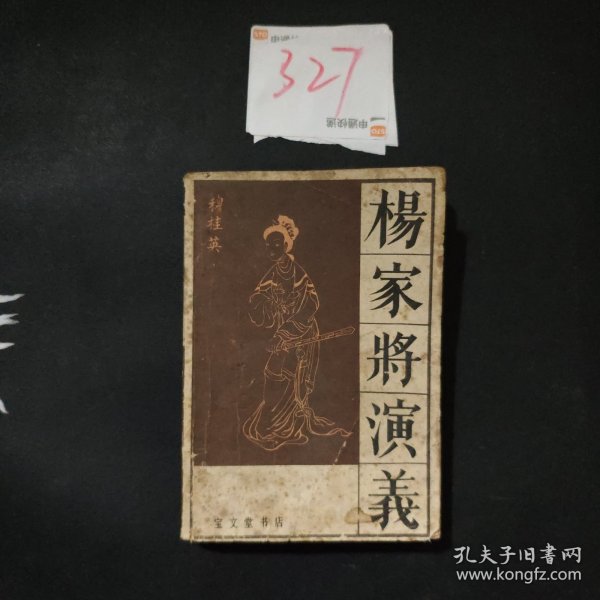 327
申通快递
STO
楊家將演義
穆桂英
宝文堂书店
孔夫子旧书网
www.kongfz.com